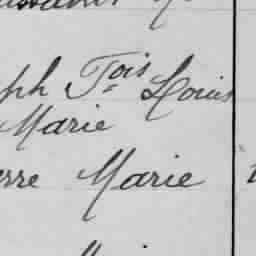 ph Fois Louis
Marie
erre Marie